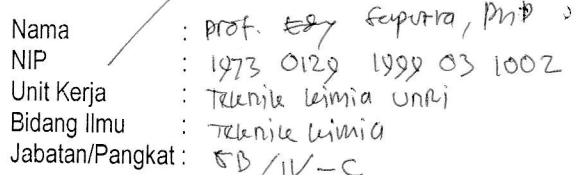 Nama : Prof. Edy Saputra, PhD
NIP : 1973 0129 1999 03 1002
Unit Kerja : Teknik kimia UNRI
Bidang Ilmu : Teknik kimia
Jabatan/Pangkat : GB/IV-C